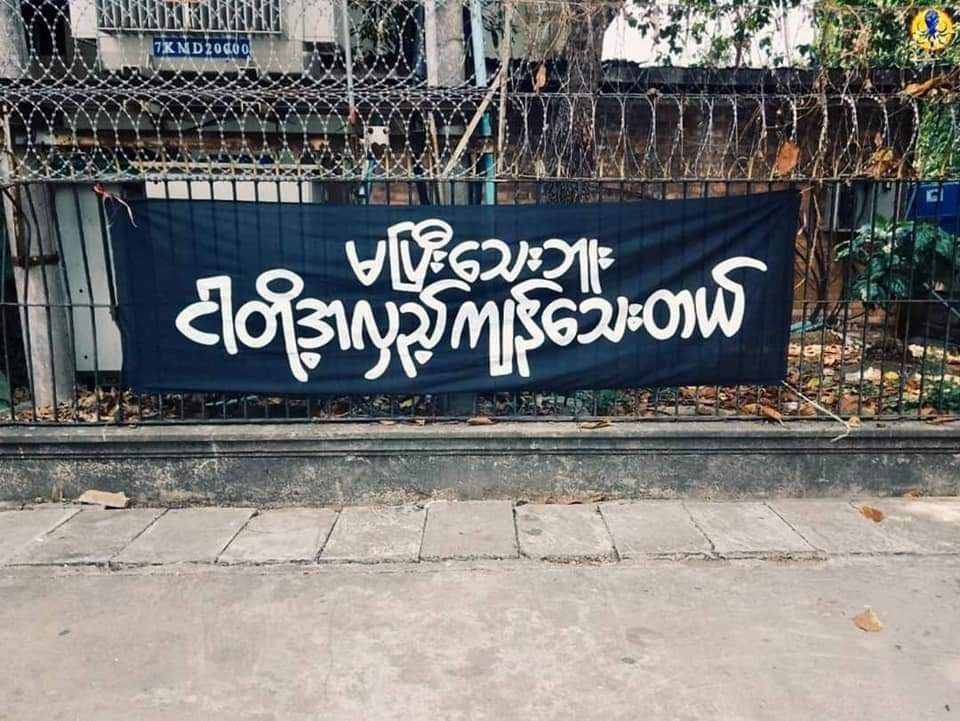 7KMD20000
မပြီးသေးဘူး
ငါတို့အလှည့်ကျန်သေးတယ်